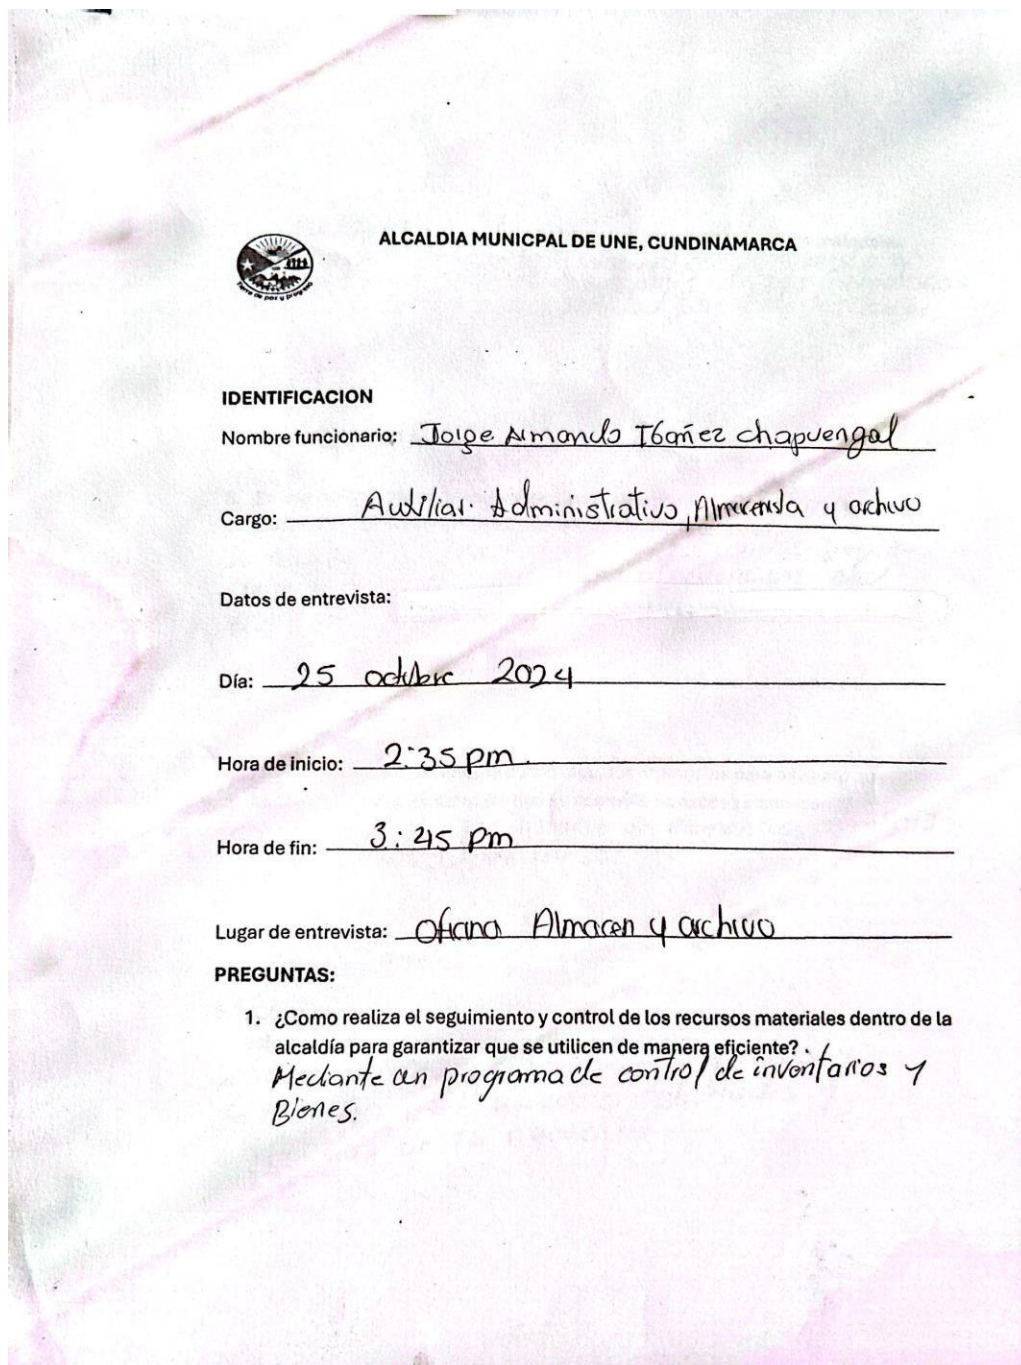 ALCALDIA MUNICPAL DE UNE, CUNDINAMARCA
Tierra de paz y progreso
IDENTIFICACION
Nombre funcionario: Jorge Armando Ibañez chapuengal
Cargo: Auxiliar Administrativo, Almacenista y archivo
Datos de entrevista:
Día: 25 octubre 2024
Hora de inicio: 2:35 pm.
Hora de fin: 3:45 pm
Lugar de entrevista: Oficina Almacen y archivo
PREGUNTAS:
1. ¿Como realiza el seguimiento y control de los recursos materiales dentro de la
alcaldía para garantizar que se utilicen de manera eficiente?
Mediante un programa de control de inventarios y
Bienes.